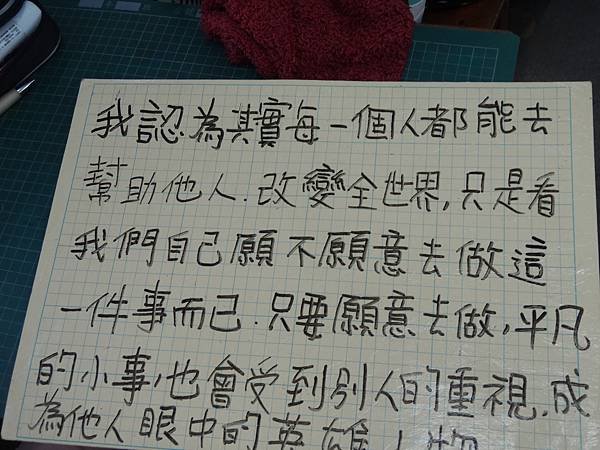 我認為其實每一個人都能去
幫助他人.改變全世界,只是看
我們自己願不願意去做這
一件事而已.只要願意去做,平凡
的小事,也會受到別人的重視.成
為他人眼中的英雄人物